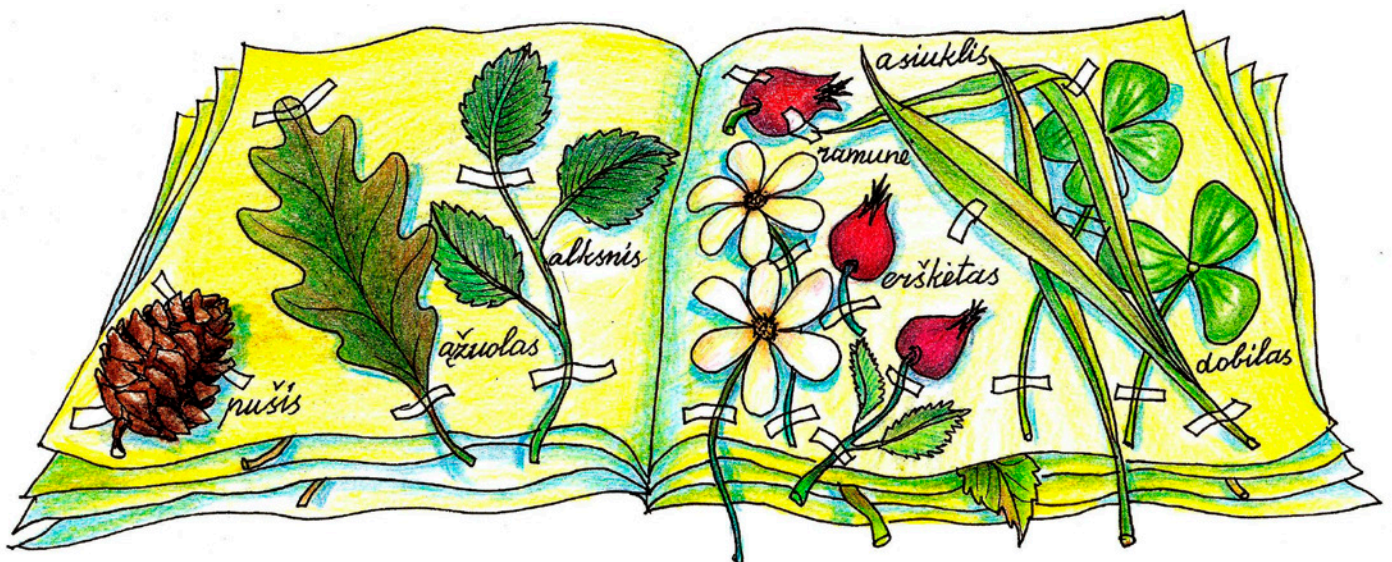 pušis
ąžuolas
alksnis
asiuklis
ramunė
erškėtas
dobilas